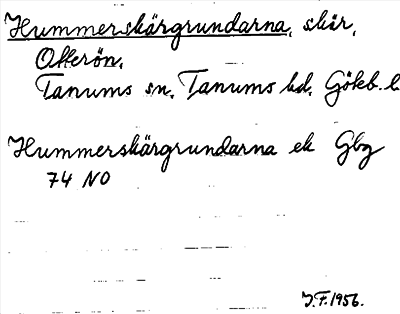 Hummerskärgrundarna, skär,
Otterön,
Tanums sn, Tanums hd, Göteb. l
Hummerskärgrundarna ek Gbg
74 NO
J.F. 1956.